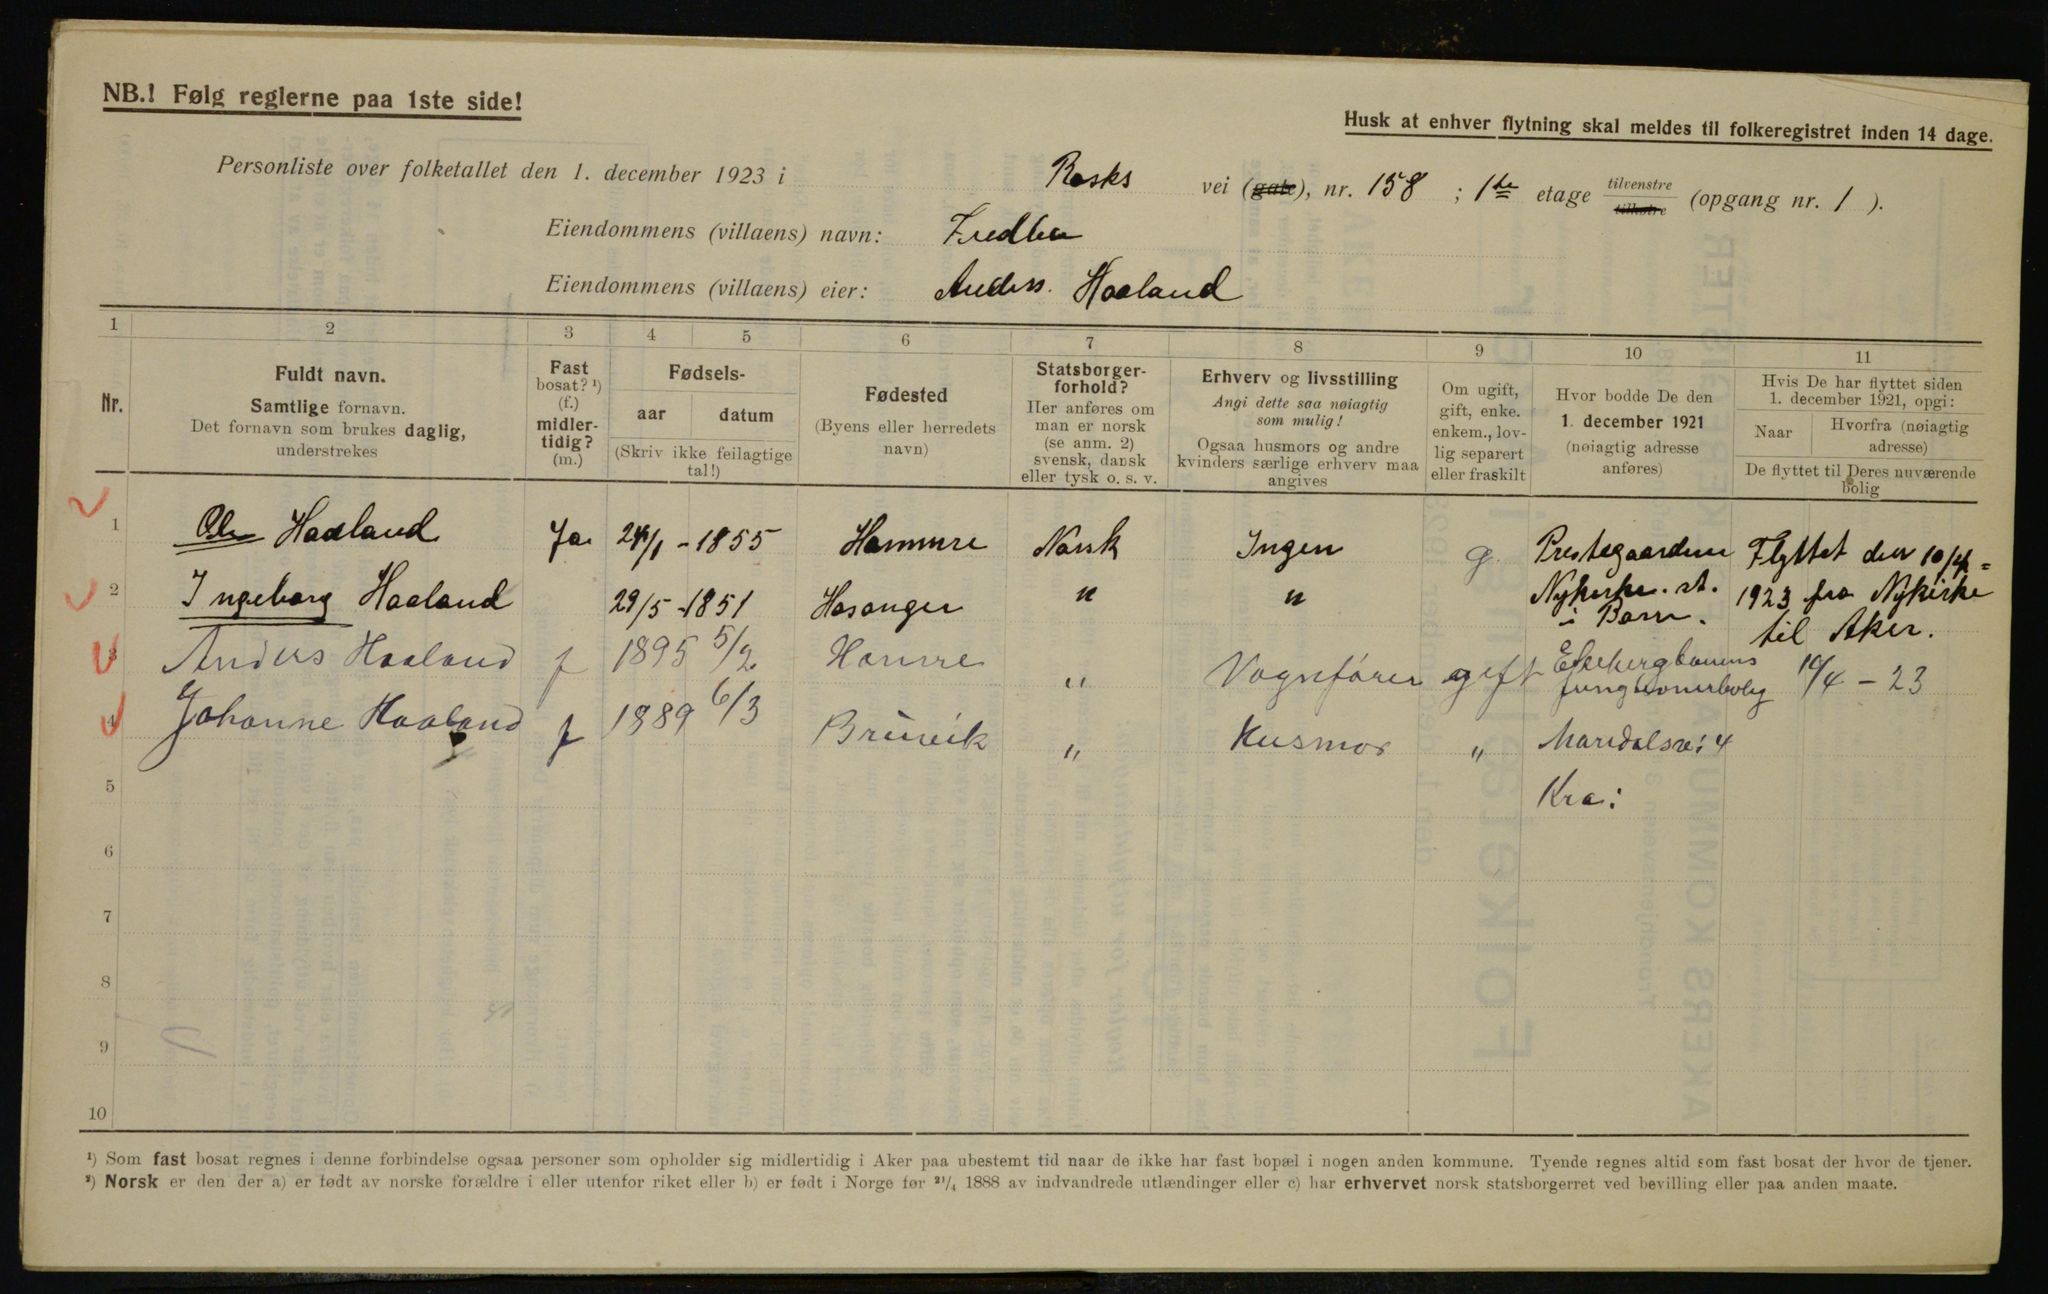 NB.! Følg reglerne paa 1ste side!
Husk at enhver flytning skal meldes til folkeregistret inden 14 dage.
Personliste over folketallet den 1. december 1923 i Rosks vei (gate), nr. 158 ; 1ste etage tilvenstre tilhøire (opgang nr. 1 ).
Eiendommens (villaens) navn: Fredbo
Eiendommens (villaens) eier: Anders. Haaland
1 2 3 4 5 6 7 8 9 10 11
Nr.
Fuldt navn.
Samtlige fornavn.
Det fornavn som brukes daglig,
understrekes
Fast
bosat? ¹)
(f.)
midler-
tidig?
(m.)
Fødsels-
aar datum
(Skriv ikke feilagtige
tal!)
Fødested
(Byens eller herredets
navn)
Statsborger-
forhold?
Her anføres om
man er norsk
(se anm. 2)
svensk, dansk
eller tysk o. s. v.
Erhverv og livsstilling
Angi dette saa nøiagtig
som mulig!
Ogsaa husmors og andre
kvinders særlige erhverv maa
angives
Om ugift,
gift, enke.
enkem., lov-
lig separert
eller fraskilt
Hvor bodde De den
1. december 1921
(nøiagtig adresse
anføres)
Hvis De har flyttet siden
1. december 1921, opgi:
Naar Hvorfra (nøiagtig
adresse)
De flyttet til Deres nuværende
bolig
1 Ole Haaland Ja 24/1 - 1855 Hammre Norsk Ingen g Prestegaarden Flyttet den 10/4 =
2 Ingeborg Haaland 29/5 - 1851 Hosanger " " Nykirke. st. 1923 fra Nykirke
i Borre. til Aker.
3 Anders Haaland f 1895 5/2 Hamre " Vognfører gift Ekebergbanens 10/4 - 23
funktionærbolig
4 Johanne Haaland f 1889 6/3 Bruvik " Husmor " Maridalsvei 4
5 Kra:
6
7
8
9
10
¹) Som fast bosat regnes i denne forbindelse ogsaa personer som opholder sig midlertidig i Aker paa ubestemt tid naar de ikke har fast bopæl i nogen anden kommune. Tyende regnes altid som fast bosat der hvor de tjener.
²) Norsk er den der a) er født av norske forældre i eller utenfor riket eller b) er født i Norge før ²¹/₄ 1888 av indvandrede utlændinger eller c) har erhvervet norsk statsborgerret ved bevilling eller paa anden maate.